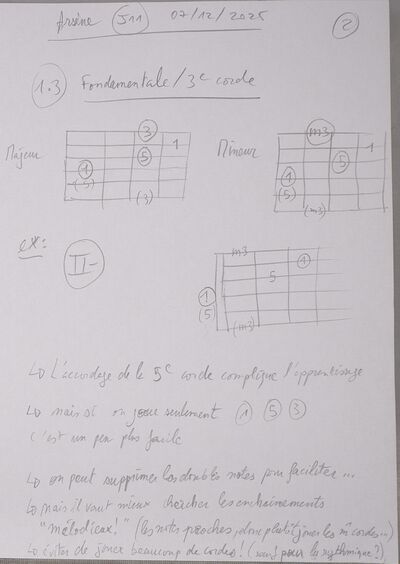 Arsène J11 07/12/2025 2
1.3 Fondamentale / 3e corde
Majeur 3 1 5 1 (5) (3)
Mineur m3 1 5 1 (5) (m3)
ex: II- m3 1 5 1 (5) (m3)
↳ L'accordage de la 5e corde complique l'apprentissage
↳ mais si on joue seulement 1 5 3
c'est un peu plus facile
↳ on peut supprimer les doubles notes pour faciliter...
↳ mais il vaut mieux chercher les enchainements
"mélodieux!" (les notes proches, donc plutôt jouer les m̂ cordes...)
↳ éviter de jouer beaucoup de cordes! (sauf pour la rythmique?)